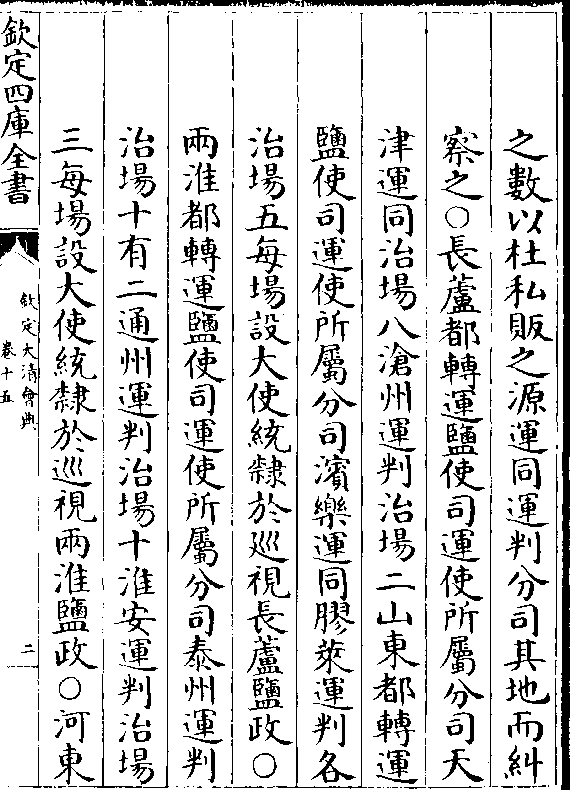 之數以杜私販之源運同運判分司其地而糾
察之○長蘆都轉運鹽使司運使所屬分司天
津運同治場八滄州運判治場二山東都轉運
鹽使司運使所屬分司濱樂運同膠萊運判各
治場五每場設大使統隸於巡視長蘆鹽政○
兩淮都轉運鹽使司運使所屬分司泰州運判
治場十有二通州運判治場十淮安運判治場
三每場設大使統隸於巡視兩淮鹽政○河東
欽定四庫全書
欽定大清會典
卷十五
二